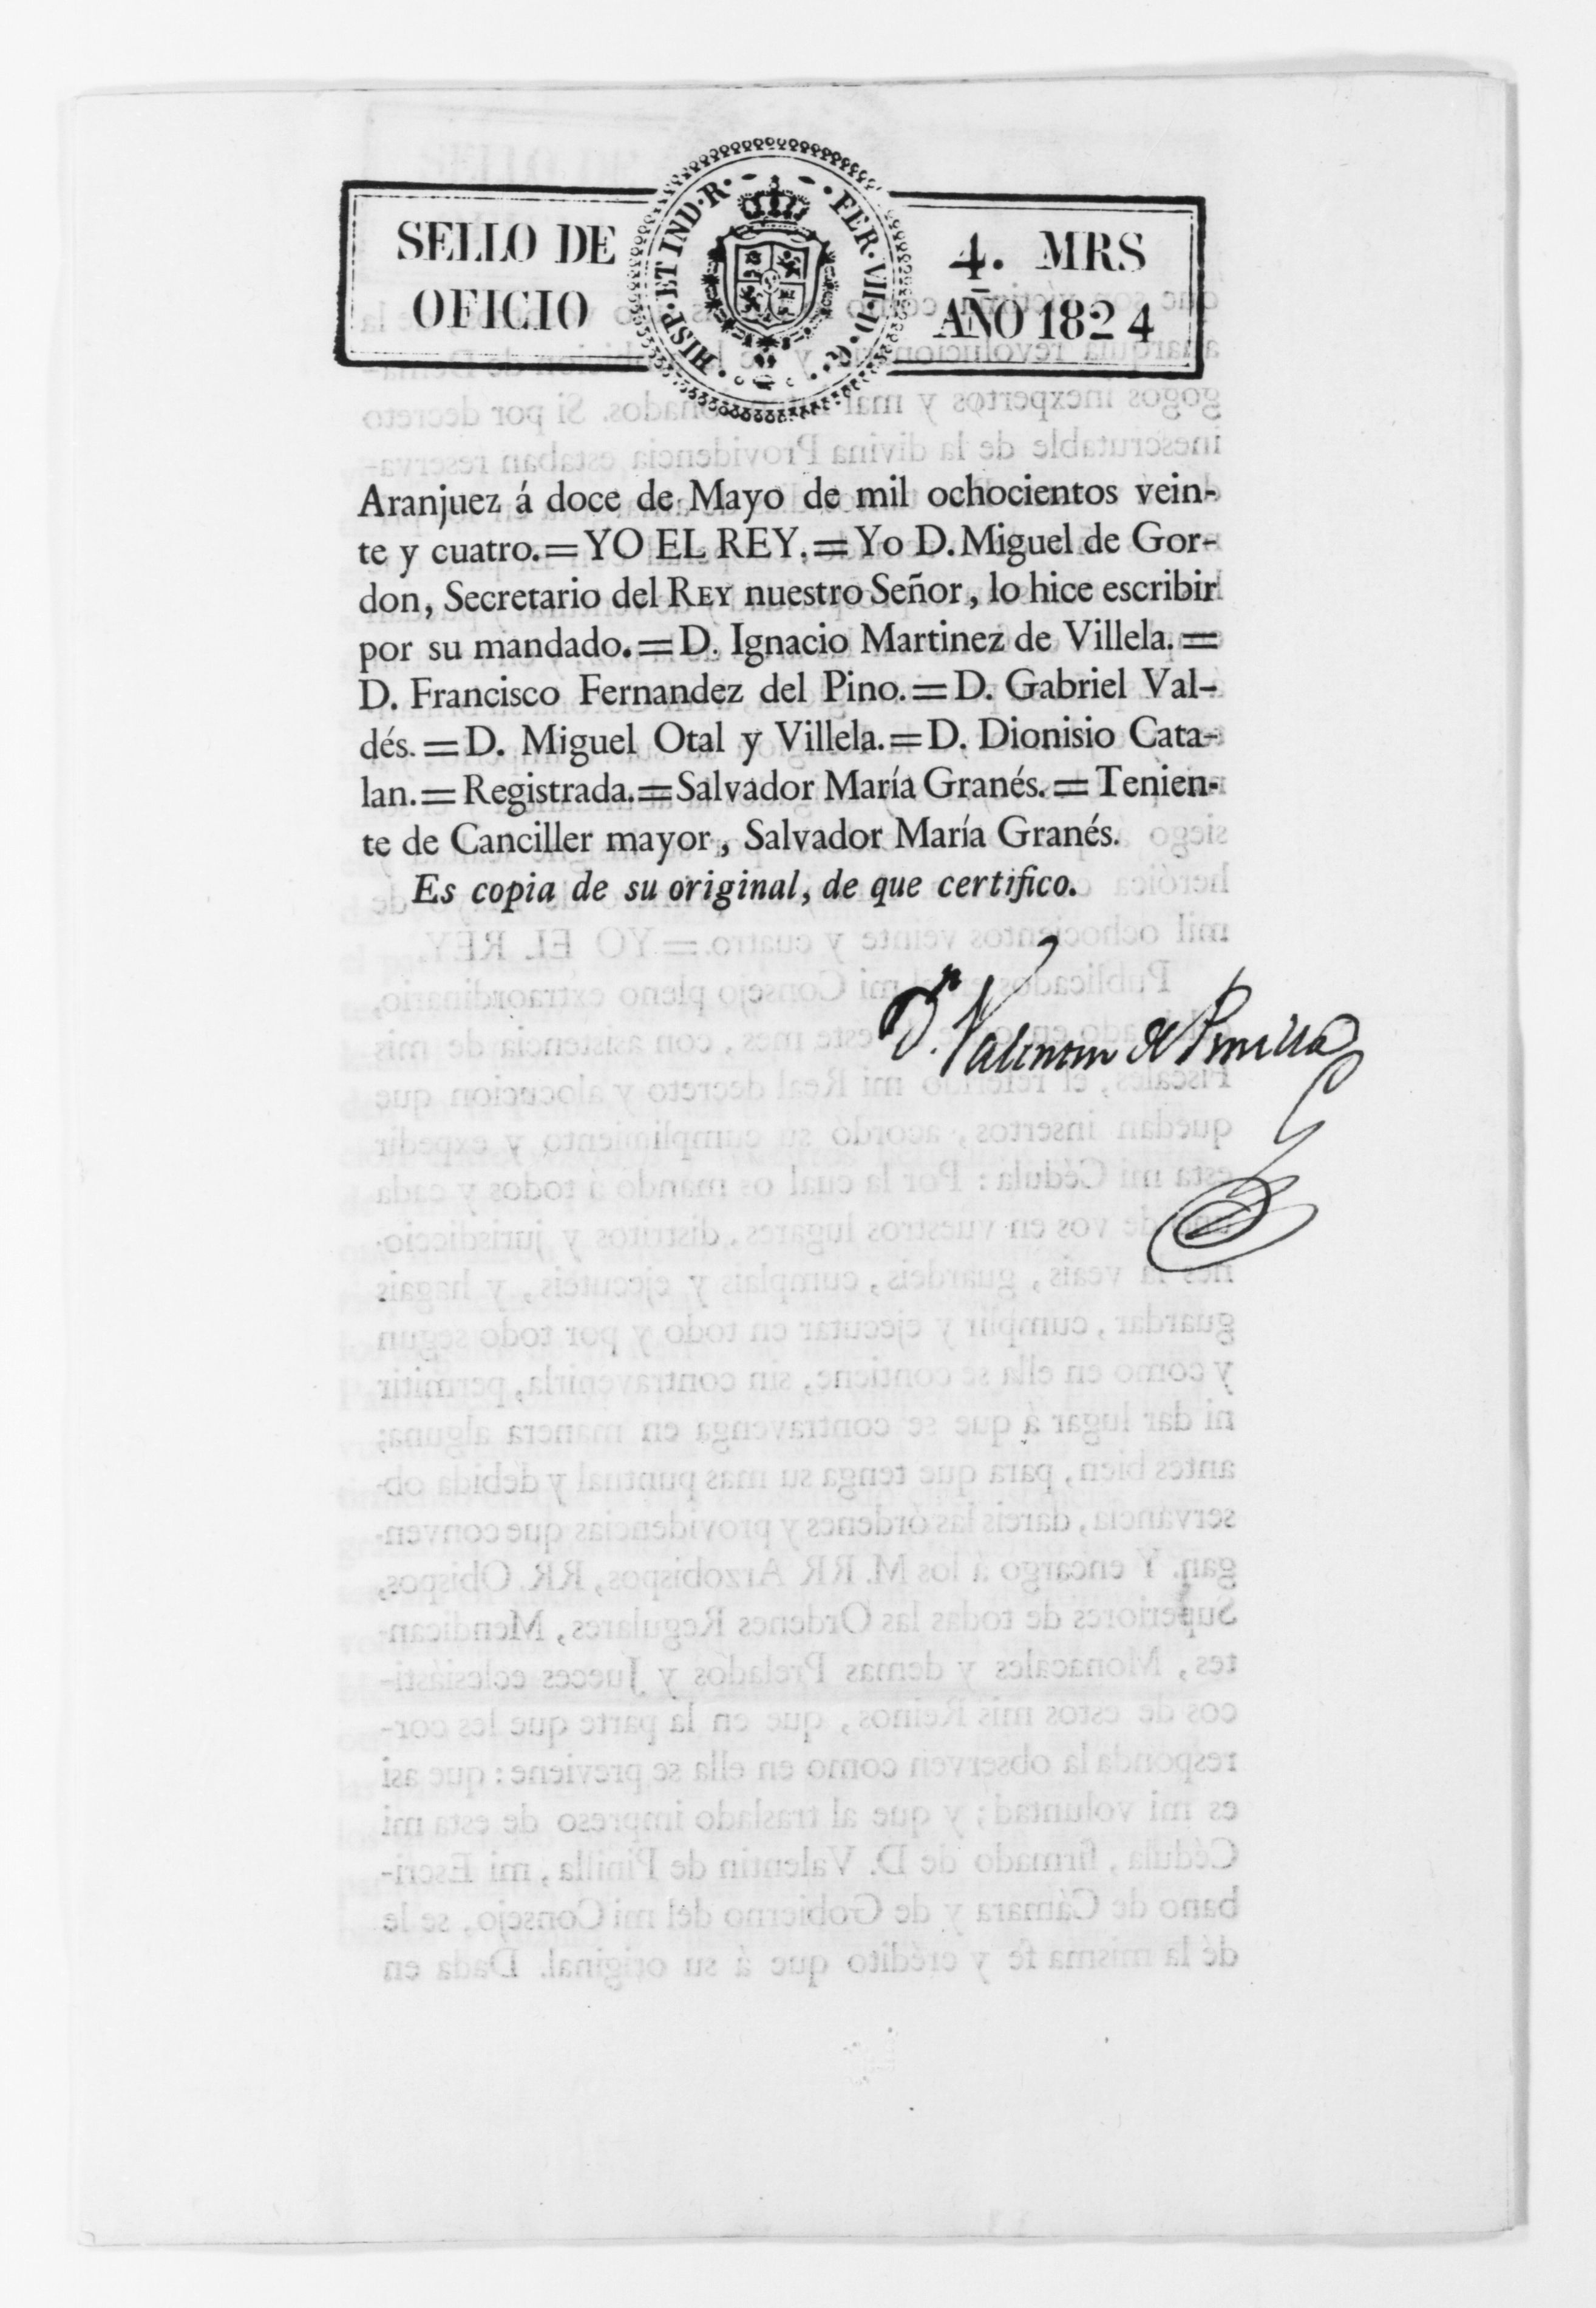 SELLO DE
OFICIO
HISP·ET IND·R·
·FER·VII·D·G·
4. MRS
AÑO 1824
Aranjuez á doce de Mayo de mil ochocientos vein-
te y cuatro.=YO EL REY.=Yo D. Miguel de Gor-
don, Secretario del REY nuestro Señor, lo hice escribir
por su mandado.=D. Ignacio Martinez de Villela.=
D. Francisco Fernandez del Pino.=D. Gabriel Val-
dés.=D. Miguel Otal y Villela.=D. Dionisio Cata-
lan.=Registrada.=Salvador María Granés.=Tenien-
te de Canciller mayor, Salvador María Granés.
Es copia de su original, de que certifico.
Dn. Valentin de Pinilla